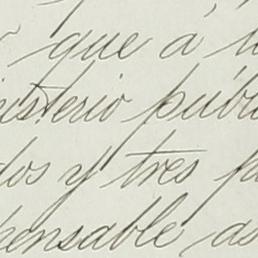 que á
isterio públi
dos y tres p
pensable as